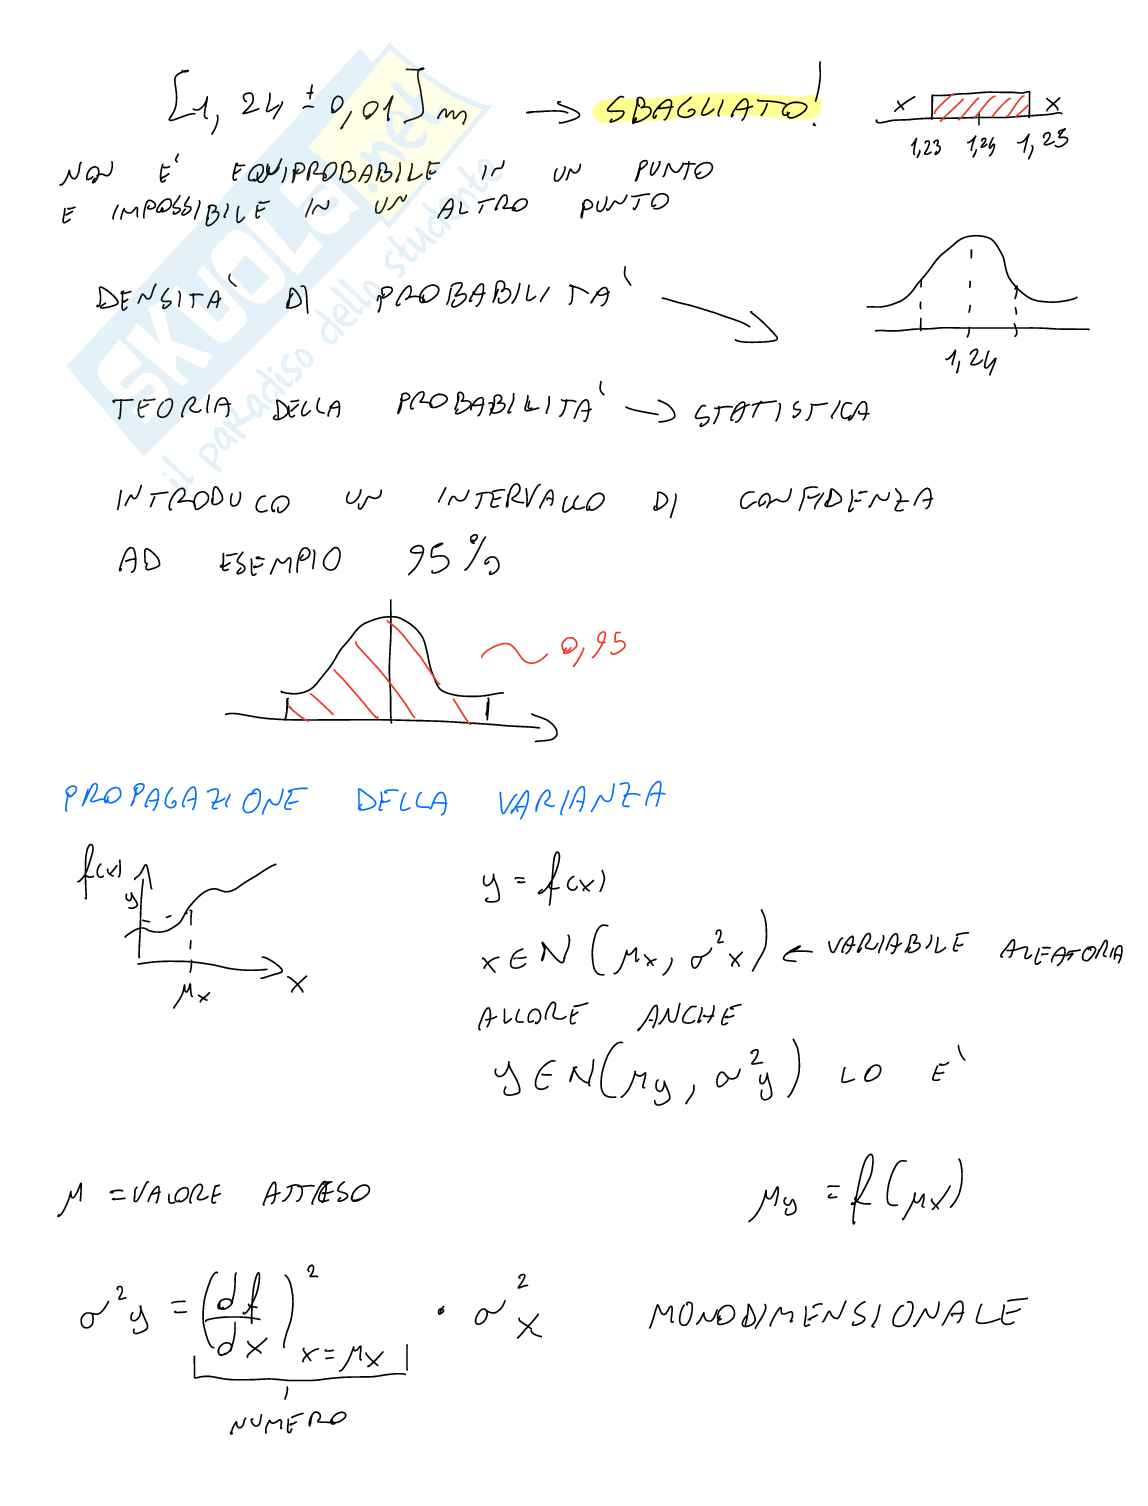 [1,24 ± 0,01] m → SBAGLIATO!
x x
1,23 1,24 1,25
NON E' EQUIPROBABILE IN UN PUNTO
E IMPOSSIBILE IN UN ALTRO PUNTO
DENSITA' DI PROBABILITA'
1,24
TEORIA DELLA PROBABILITA' → STATISTICA
INTRODUCO UN INTERVALLO DI CONFIDENZA
AD ESEMPIO 95%
0,95
PROPAGAZIONE DELLA VARIANZA
f(x)
y
μx
x
y = f(x)
x ∈ N (μx, σ²x) ← VARIABILE ALEATORIA
ALLORE ANCHE
y ∈ N(μy, σ²y) LO E'
μ = VALORE ATTESO
μy = f(μx)
σ²y = (df/dx)²x=μx · σ²x MONODIMENSIONALE
NUMERO
SKUOLA.net
il paradiso dello studente